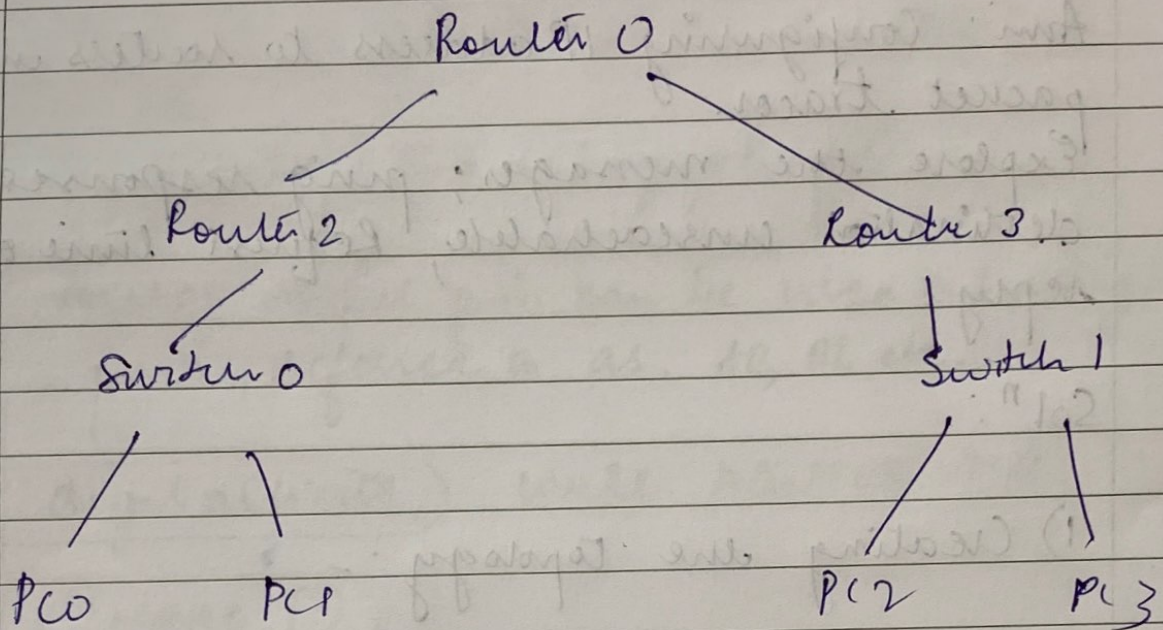 Router 0
Router 2 Router 3
Switch 0 Switch 1
PC0 PC1 PC2 PC3